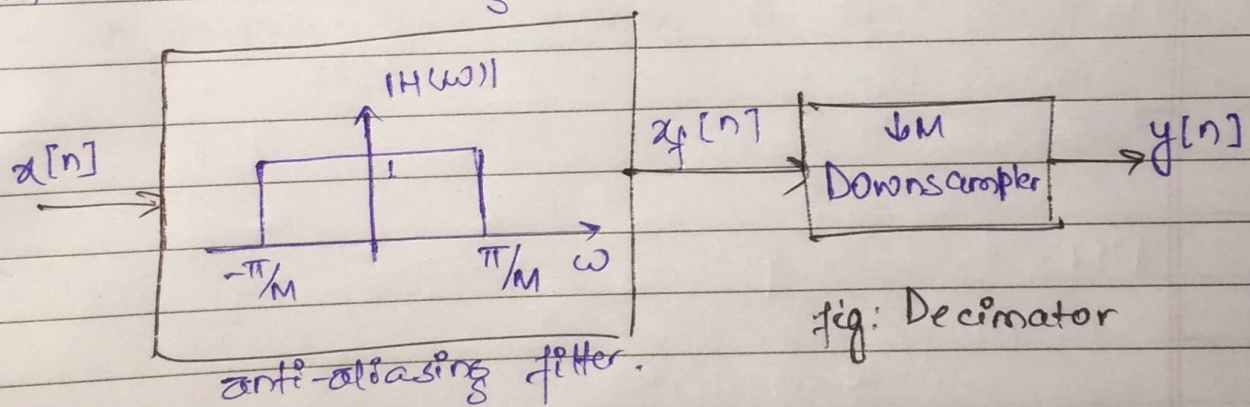 |H(ω)|
x[n]
1
-π/M
π/M
ω
anti-aliasing filter.
xf[n]
↓M
Downsampler
y[n]
fig: Decimator